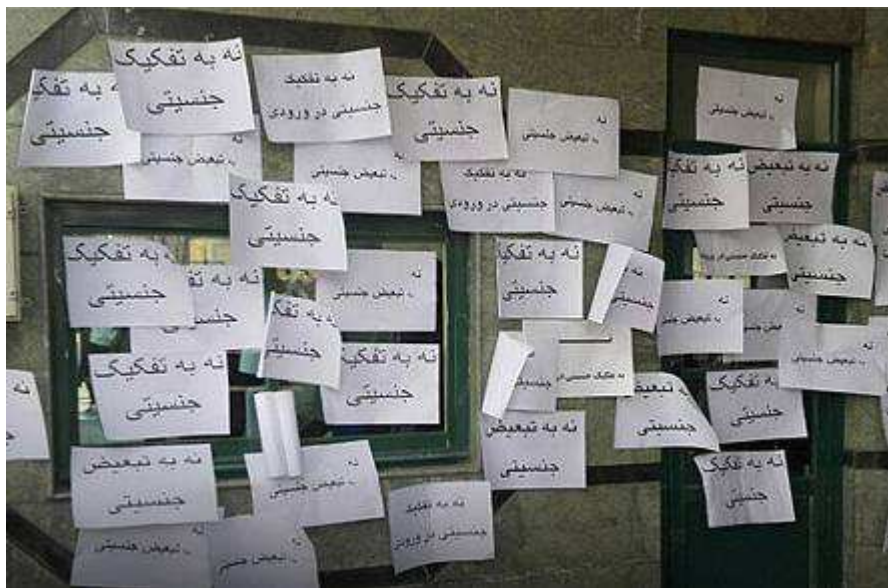 نه به تفکیک
جنسیتی
نه به تفک
جنسیتی
نه به تفکیک
جنسیتی در ورودی
نه به تفکیک
جنسیتی
نه
به تبعیض جنسیتی
نه
به تبعیض جنسیتی
به تبعیض جنسیتی
به تبعیض جنسیتی
نه به تفکیک
جنسیتی
نه به تفکیک
جنسیتی در ورودی
نه
به تبعیض جنسیتی
نه به تفکیک
جنسیتی
نه به تبعیض
جنسیتی
نه به تفکیک
جنسیتی
به تفکیک
جنسیتی
نه
به تبعیض جنسیتی
نه به تفکیک
جنسیتی
نه به
جنسیتی
به تفکیک جنسیتی در ورود
نه به تبعیض
جنسیتی
نه به تفک
جنسیتی
نه
به تبعیض جنسیتی
نه
تبعیض جنسیتی
نه
به تبعیض جنسیتی
نه به تفکیک
جنسیتی
نه به تفکیک
جنسیتی
جنسیتی
به تفکیک جنسیتی در
به تبعیض
جنسیتی
نه به تفکیک
جنسیتی
نه به تبعیض
جنسیتی
نه
به تبعیض جنسیتی
نه به تبعیض
جنسیتی
نه به تفکیک
جنسیتی
نه به تفکیک
جنسیتی در ورودی
به تبعیض جنسیتی
نه
به تبعیض جنسیتی